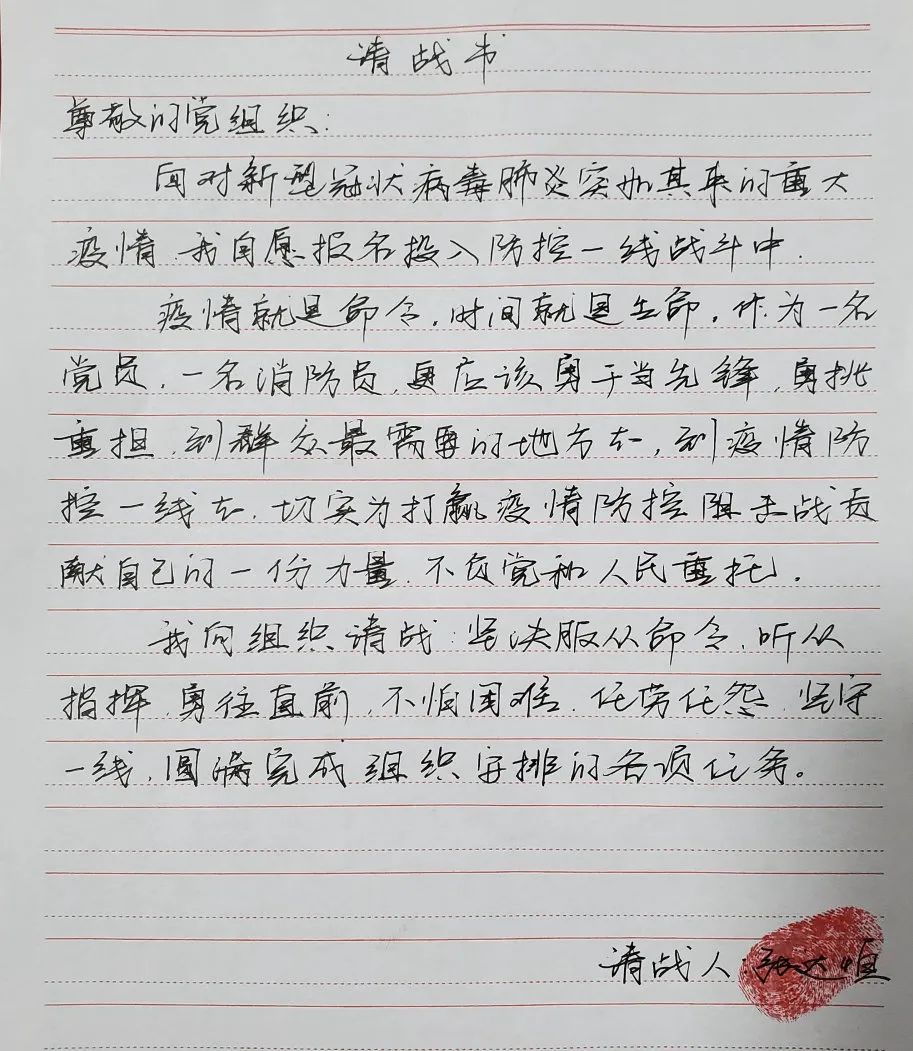 请战书
尊敬的党组织:
面对新型冠状病毒肺炎突如其来的重大
疫情,我自愿报名投入防控一线战斗中.
疫情就是命令,时间就是生命,作为一名
党员,一名消防员,更应该勇于当先锋,勇挑
重担,到群众最需要的地方去,到疫情防
控一线去,切实为打赢疫情防控阻击战贡
献自己的一份力量,不负党和人民重托。
我向组织请战:坚决服从命令,听从
指挥,勇往直前,不怕困难,任劳任怨,坚守
一线,圆满完成组织安排的各项任务。
请战人:张大恒